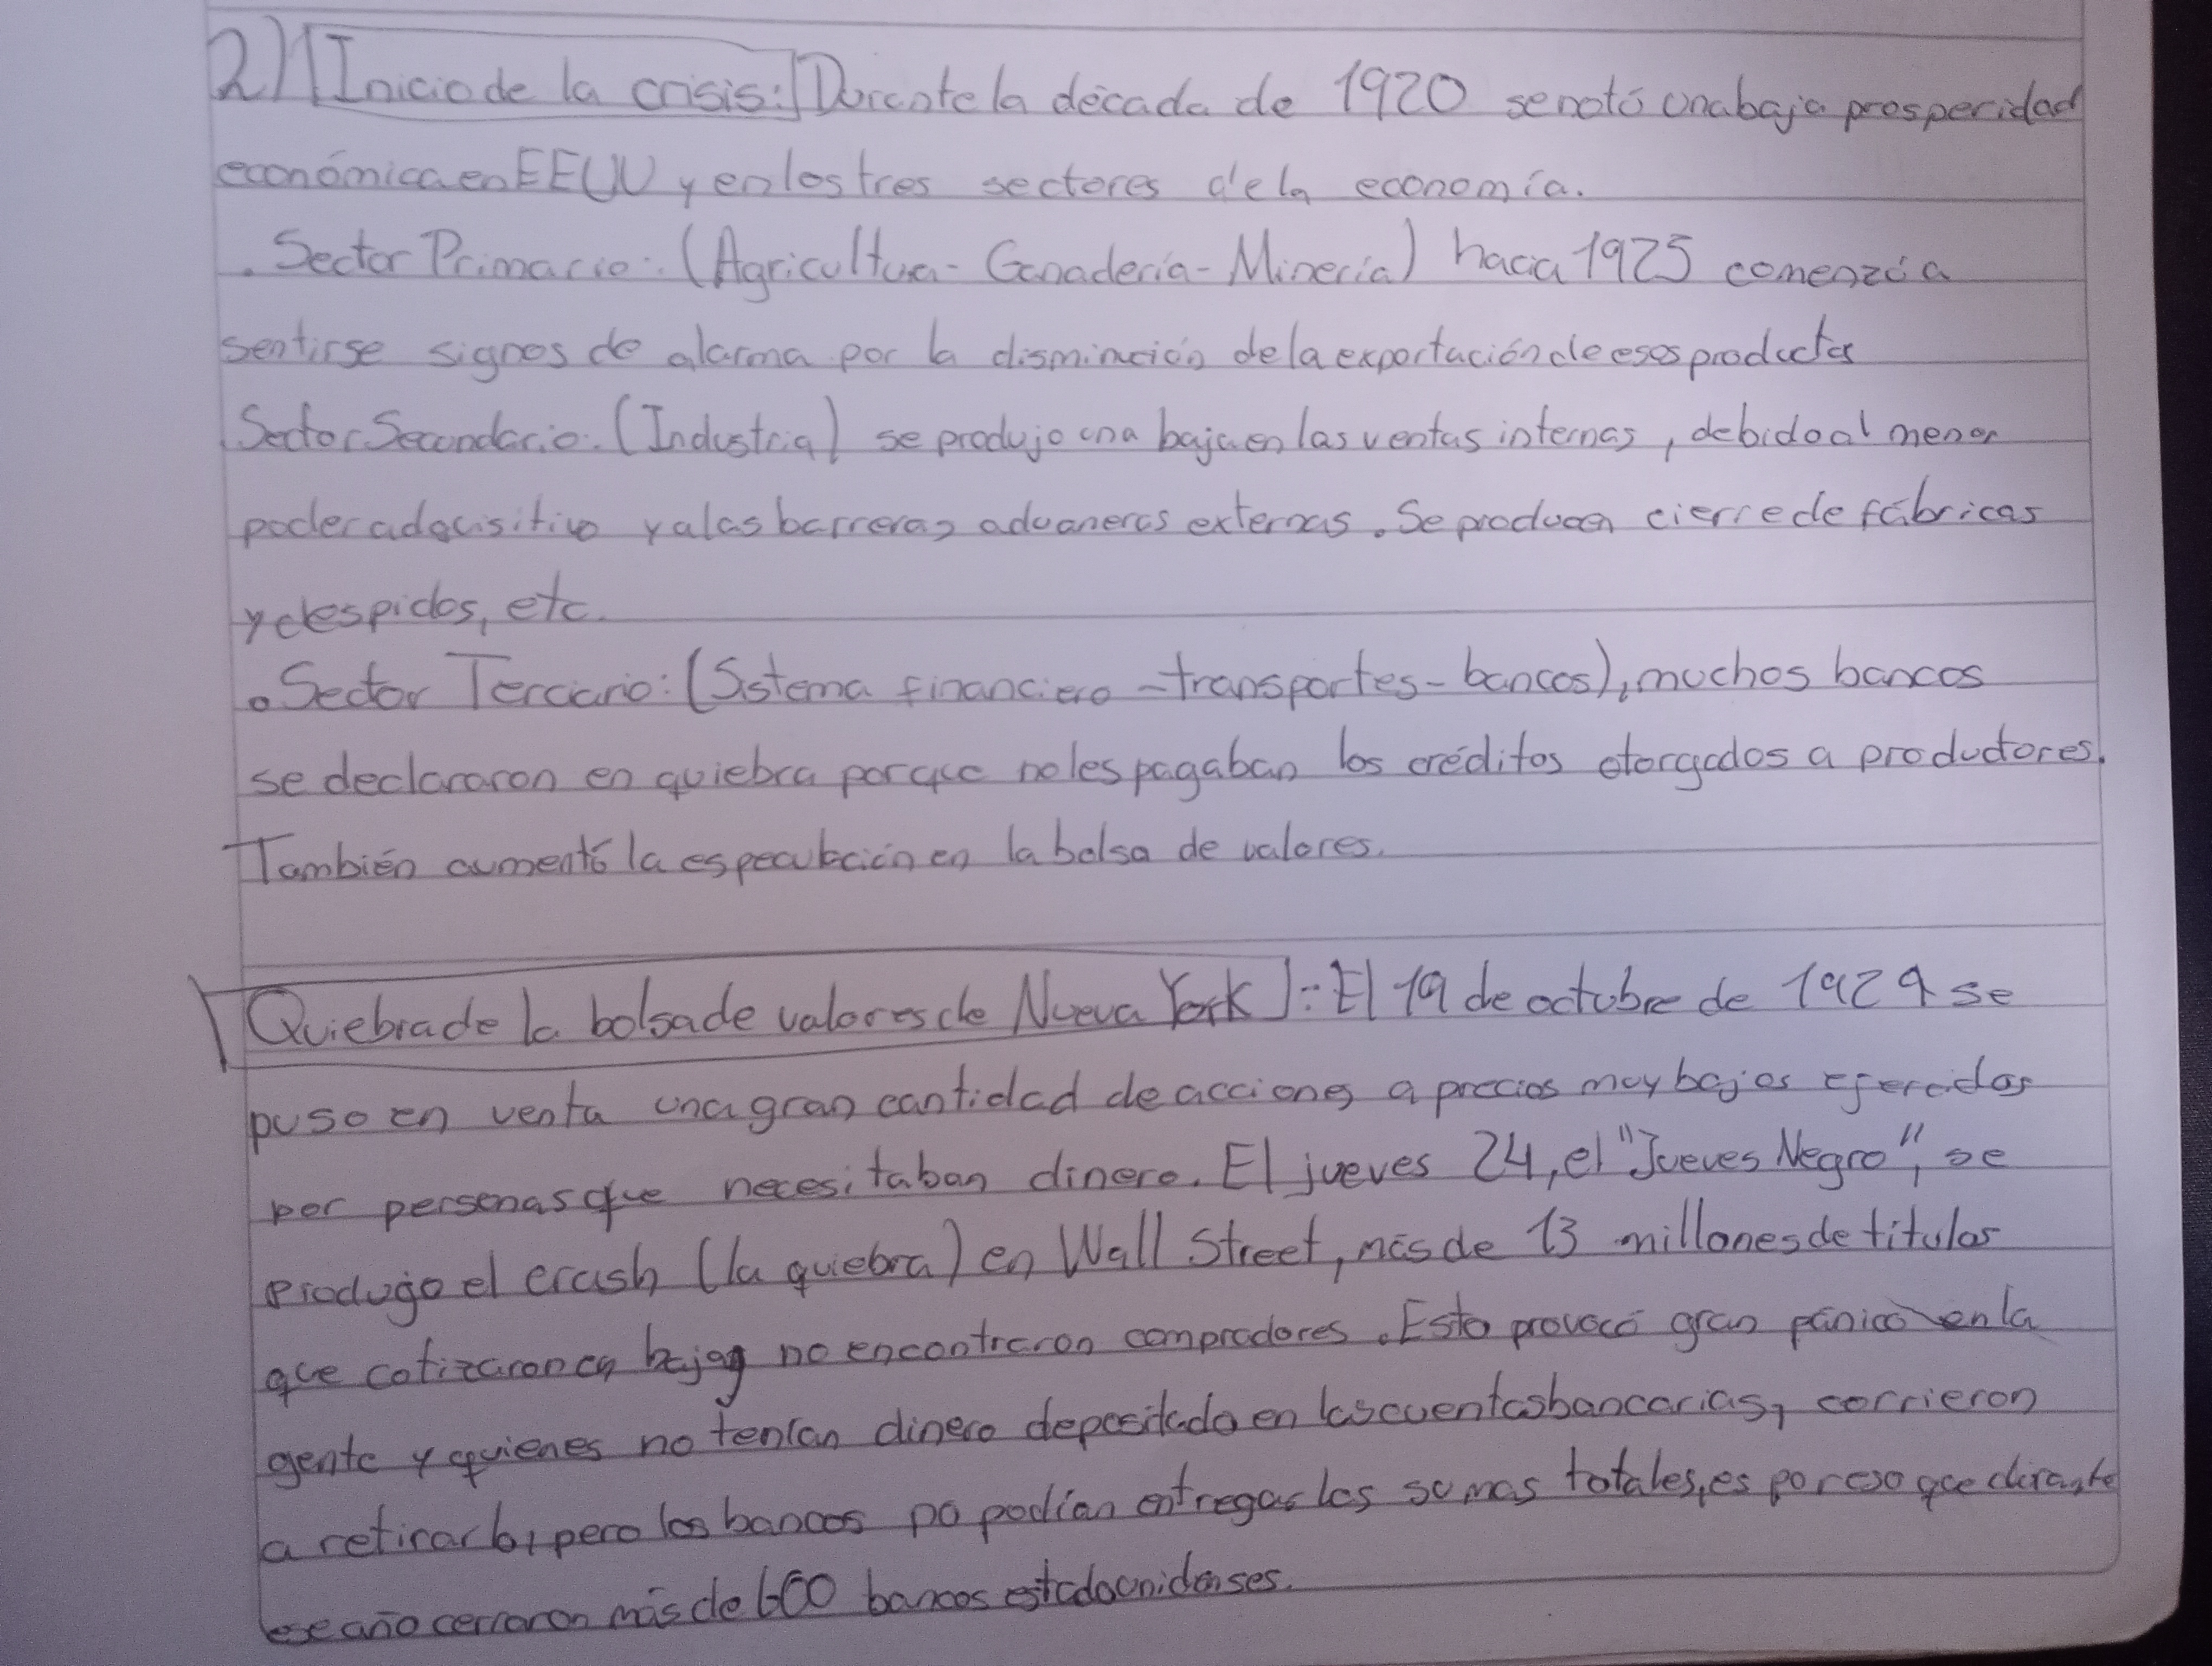 2) Inicio de la crisis: Durante la década de 1920 se notó una baja prosperidad
económica en EEUU y en los tres sectores de la economía.
. Sector Primario: (Agricultura - Ganadería - Minería) hacia 1925 comenzó a
sentirse signos de alarma por la disminución de la exportación de esos productos
. Sector Secundario: (Industria) se produjo una baja en las ventas internas, debido al menor
poder adquisitivo y a las barreras aduaneras externas. Se producen cierre de fábricas
y despidos, etc.
. Sector Terciario: (Sistema financiero - transportes - bancos), muchos bancos
se declararon en quiebra porque no les pagaban los créditos otorgados a productores.
También aumentó la especulación en la bolsa de valores.
Quiebra de la bolsa de valores de Nueva York: El 19 de octubre de 1929 se
puso en venta una gran cantidad de acciones a precios muy bajos
por personas que necesitaban dinero. El jueves 24, el "Jueves Negro", se
produgo el crash (la quiebra) en Wall Street, más de 13 millones de titulos
que cotizaron en baja no encontraron compradores. Esto provocó gran pánico en la
gente y quienes no tenían dinero depositado en las cuentas bancarias, corrieron
a retirarlo, pero los bancos no podían entregar las sumas totales, es por eso que durante
ese año cerraron más de 600 bancos estadounidenses.